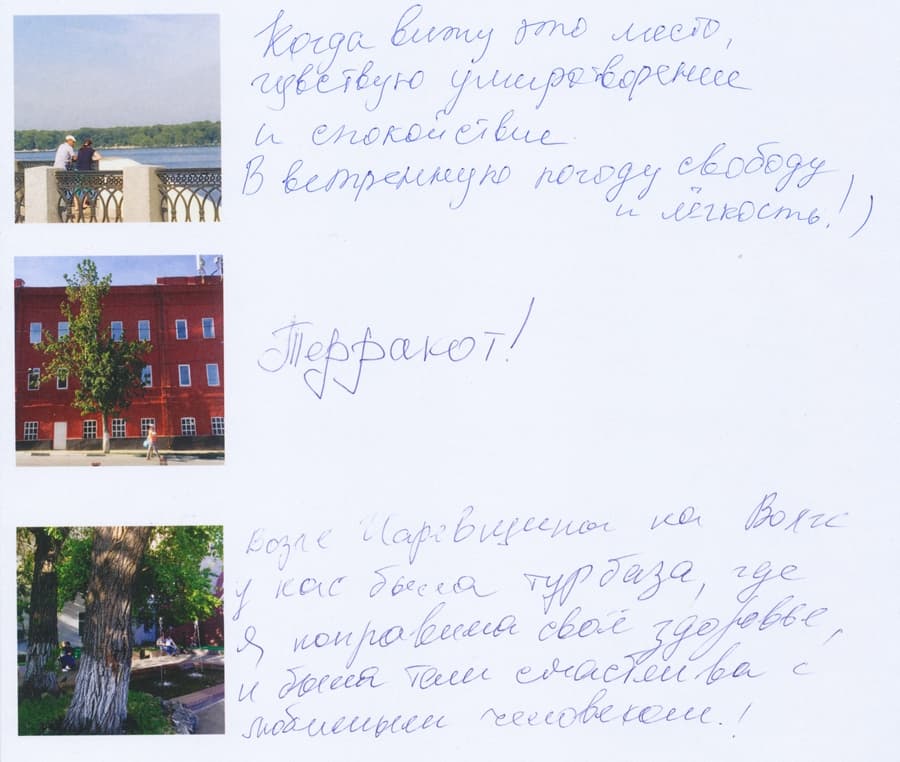 Когда вижу это место,
чувствую умиротворение
и спокойствие.
В ветренную погоду свободу
и лёгкость!)
Терракот!
Возле Царевщины на Волге
у нас была турбаза, где
я поправила своё здоровье,
и была там счастлива с
любимым человеком.!